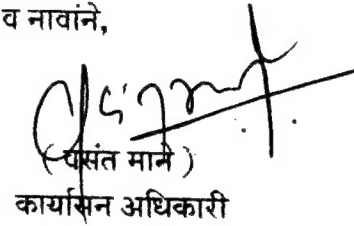 व नावांने,
(वसंत माने)
कार्यासन अधिकारी